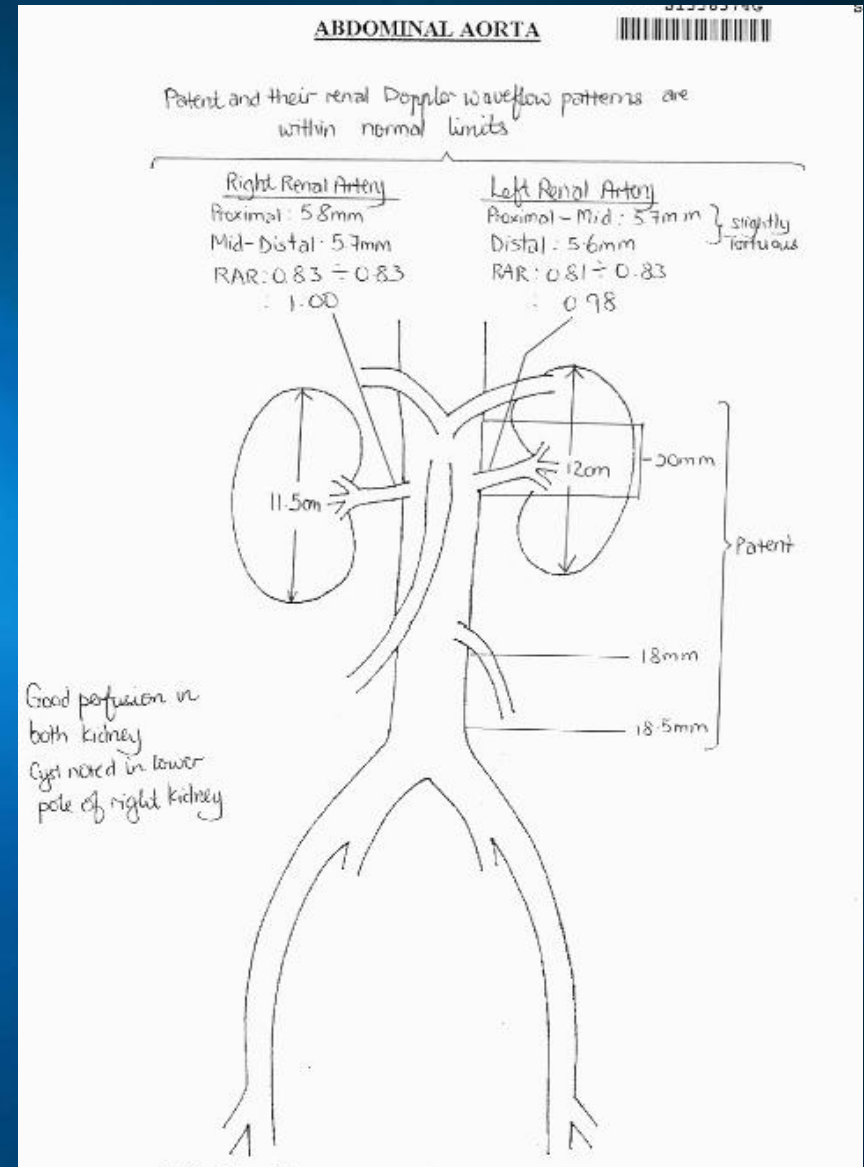 ABDOMINAL AORTA
Patent and their renal Doppler waveflow patterns are
within normal limits
Right Renal Artery
Proximal: 5.8mm
Mid-Distal: 5.7mm
RAR: 0.83 ÷ 0.83
: 1.00
Left Renal Artery
Proximal-Mid: 5.7mm
Distal: 5.6mm
slightly
tortuous
RAR: 0.81 ÷ 0.83
: 0.98
11.5cm
12cm
20mm
Patent
18mm
18.5mm
Good perfusion in
both kidney
Cyst noted in lower
pole of right kidney